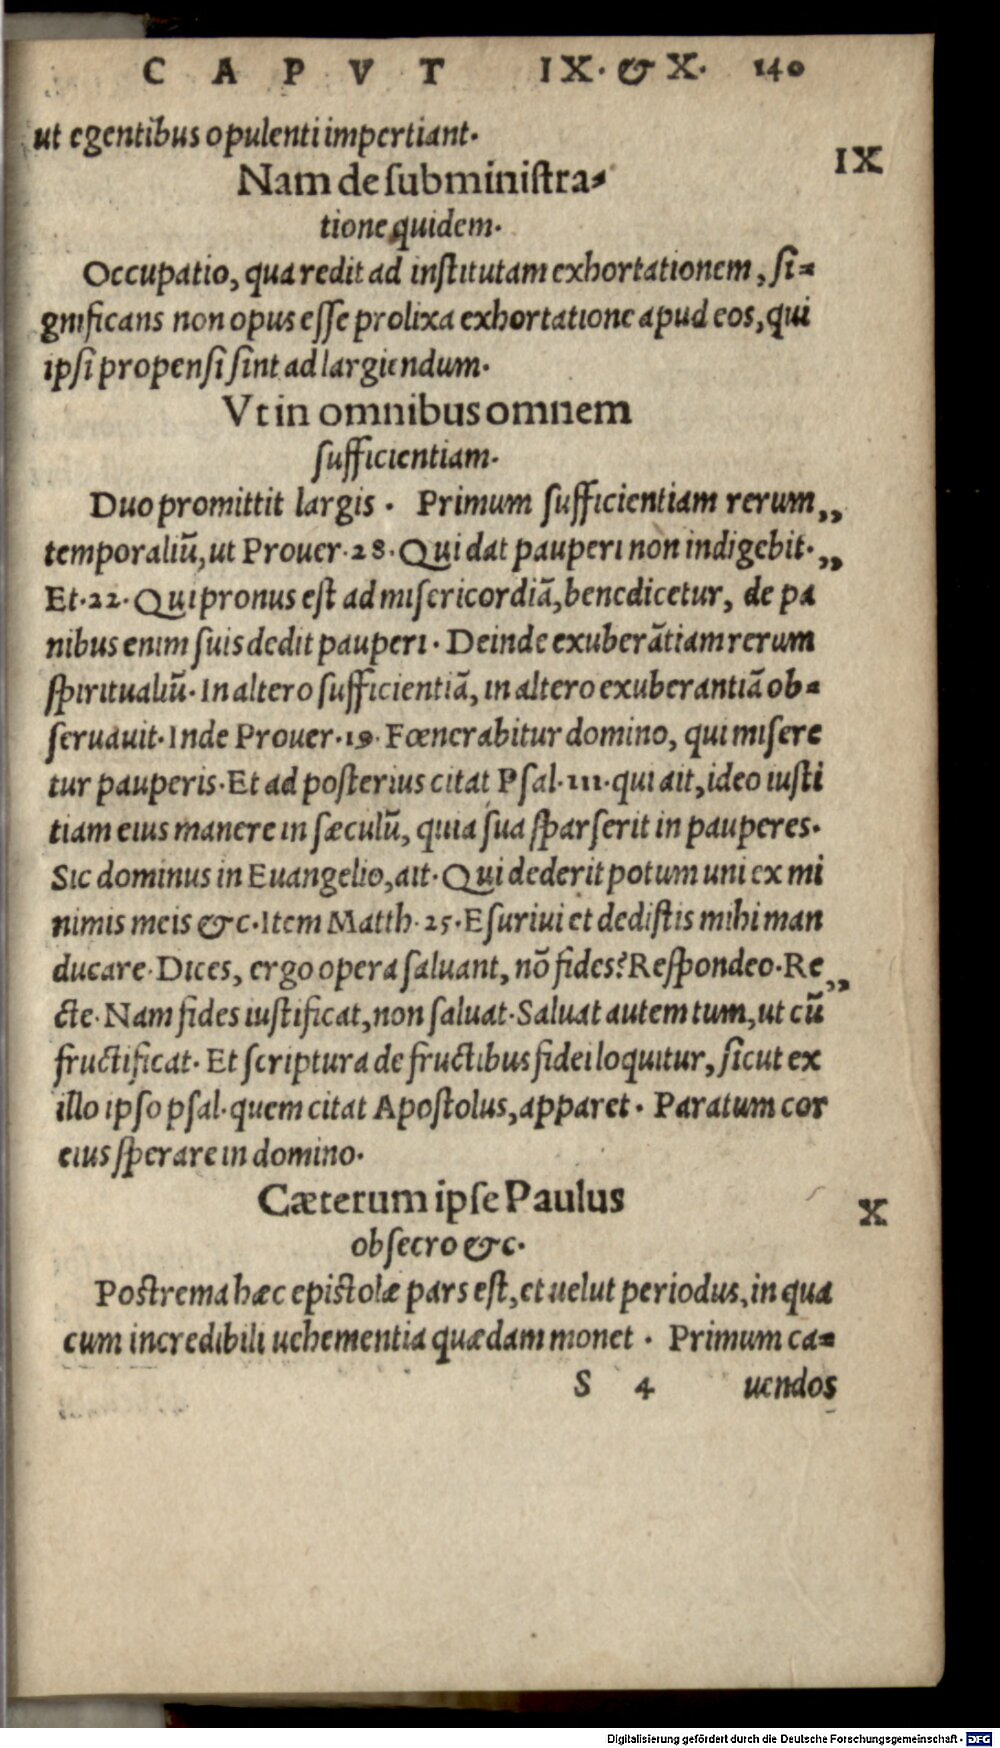 CAPVT IX. & X. 140
ut egentibus opulenti impertiant.
IX
Nam de subministra-
tione quidem.
Occupatio, qua redit ad institutam exhortationem, si-
gnificans non opus esse prolixa exhortatione apud eos, qui
ipsi propensi sint ad largiendum.
Vt in omnibus omnem
sufficientiam.
Duo promittit largis. Primum sufficientiam rerum „
temporaliũ, ut Prouer. 28. Qui dat pauperi non indigebit. „
Et. 22. Qui pronus est ad misericordiã, benedicetur, de pa
nibus enim suis dedit pauperi. Deinde exuberãtiam rerum
spiritualiũ. In altero sufficientiã, in altero exuberantiã ob-
seruauit. Inde Prouer. 19. Fœnerabitur domino, qui misere
tur pauperis. Et ad posterius citat Psal. 111. qui ait, ideo iusti
tiam eius manere in sæculũ, quia sua sparserit in pauperes.
Sic dominus in Euangelio, ait. Qui dederit potum uni ex mi
nimis meis &c. Item Matth. 25. Esuriui et dedistis mihi man
ducare. Dices, ergo opera saluant, nõ fides? Respondeo. Re „
cte. Nam fides iustificat, non saluat. Saluat autem tum, ut cũ
fructificat. Et scriptura de fructibus fidei loquitur, sicut ex
illo ipso psal. quem citat Apostolus, apparet. Paratum cor
eius sperare in domino.
Cæterum ipse Paulus
X
obsecro &c.
Postrema hæc epistolæ pars est, et uelut periodus, in qua
cum incredibili uehementia quædam monet. Primum ca-
S 4 uendos
Digitalisierung gefördert durch die Deutsche Forschungsgemeinschaft - DFG